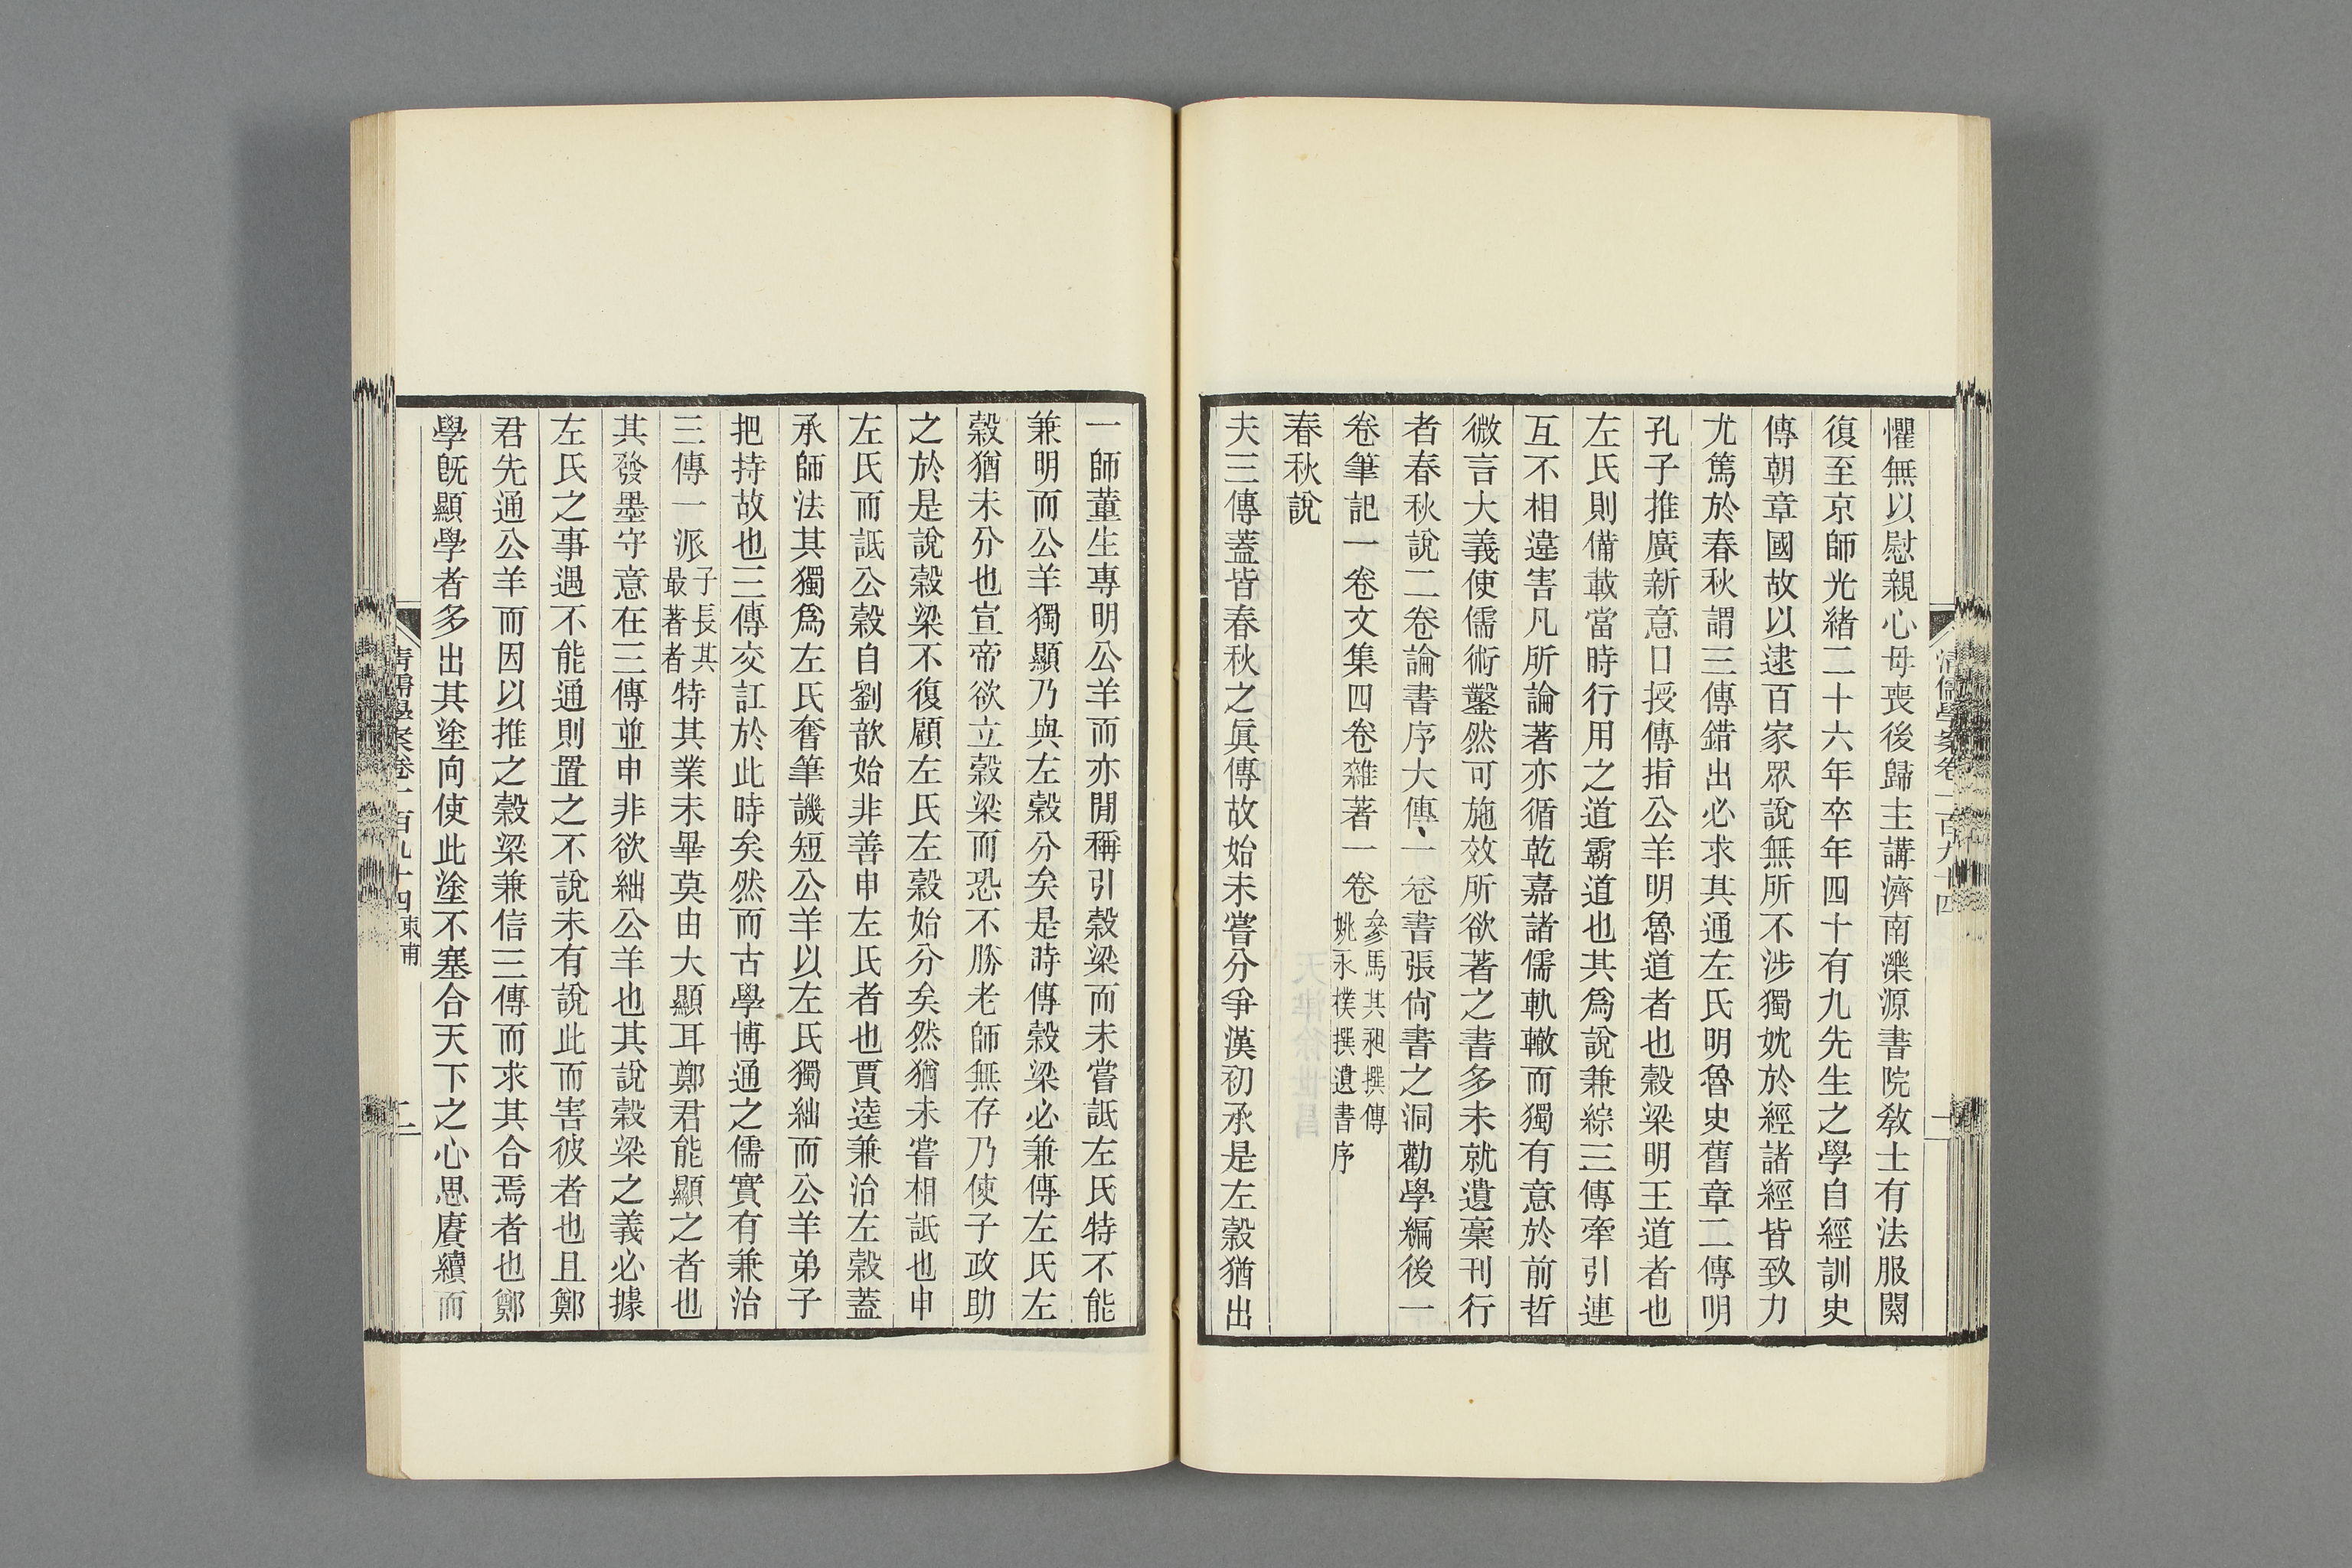 懼無以慰親心母喪後歸主講濟南濼源書院敎士有法服闋
復至京師光緒二十六年卒年四十有九先生之學自經訓史
傳朝章國故以逮百家眾說無所不涉獨妉於經諸經皆致力
尤篤於春秋謂三傳錯出必求其通左氏明魯史舊章二傳明
孔子推廣新意口授傳指公羊明魯道者也穀梁明王道者也
左氏則備載當時行用之道霸道也其爲說兼綜三傳牽引連
互不相違害凡所論著亦循乾嘉諸儒軌轍而獨有意於前哲
微言大義使儒術鑿然可施效所欲著之書多未就遺稾刊行
者春秋說二卷論書序大傳一卷書張尙書之洞勸學編後一
卷筆記一卷文集四卷雜著一卷參馬其昶撰傳
姚永樸撰遺書序
春秋說
夫三傳蓋皆春秋之眞傳故始未嘗分爭漢初承是左穀猶出
一師董生專明公羊而亦閒稱引穀梁而未嘗詆左氏特不能
兼明而公羊獨顯乃與左穀分矣是時傳穀梁必兼傳左氏左
穀猶未分也宣帝欲立穀梁而恐不勝老師無存乃使子政助
之於是說穀梁不復顧左氏左穀始分矣然猶未嘗相詆也申
左氏而詆公穀自劉歆始非善申左氏者也賈逵兼治左穀蓋
承師法其獨爲左氏奮筆譏短公羊以左氏獨絀而公羊弟子
把持故也三傳交訌於此時矣然而古學博通之儒實有兼治
三傳一派子長其
最著者特其業未畢莫由大顯耳鄭君能顯之者也
其發墨守意在三傳並申非欲絀公羊也其說穀梁之義必據
左氏之事遇不能通則置之不說未有說此而害彼者也且鄭
君先通公羊而因以推之穀梁兼信三傳而求其合焉者也鄭
學旣顯學者多出其塗向使此塗不塞合天下之心思賡續而